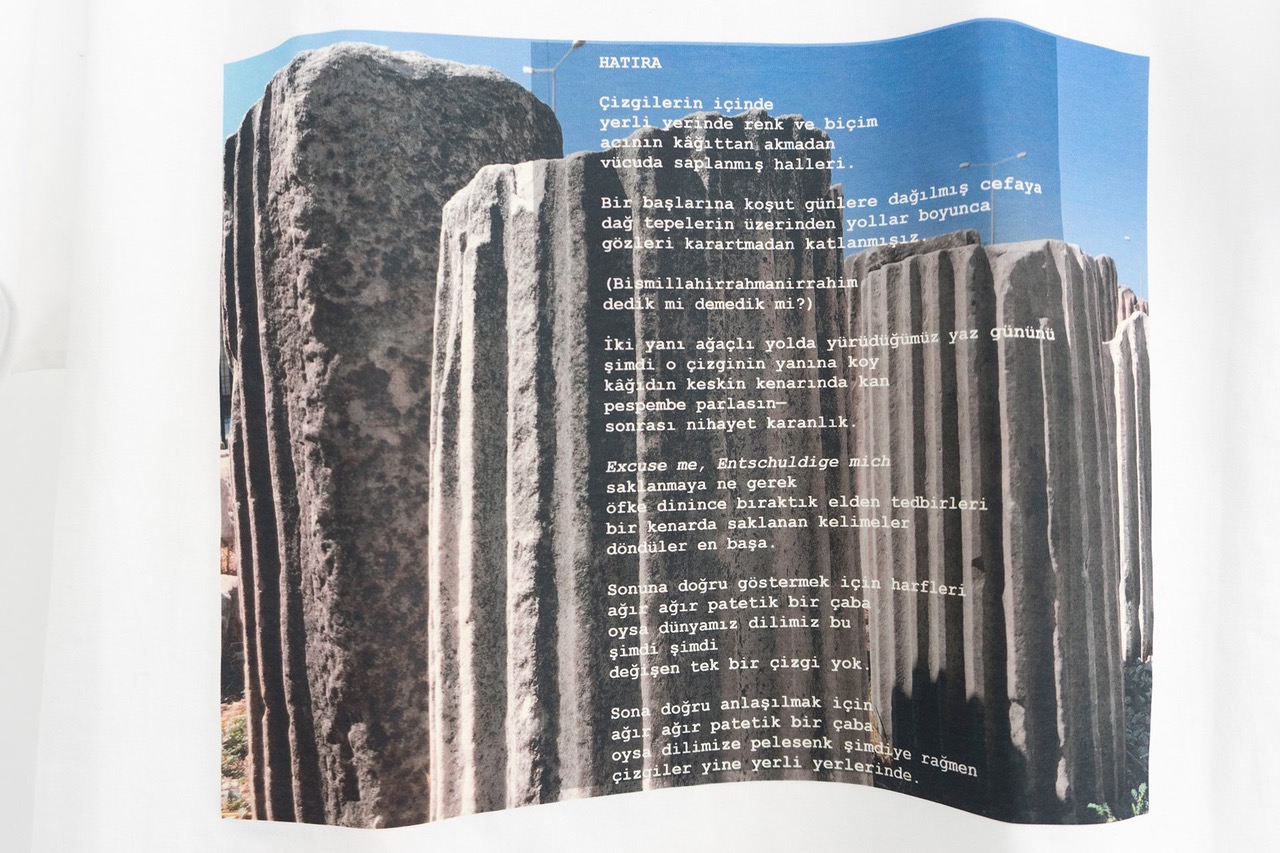 HATIRA
Çizgilerin içinde
yerli yerinde renk ve biçim
acının kâğıttan akmadan
vücuda saplanmış halleri.
Bir başlarına koşut günlere dağılmış cefaya
dağ tepelerin üzerinden yollar boyunca
gözleri karartmadan katlanmışız.
(Bismillahirrahmanirrahim
dedik mi demedik mi?)
İki yanı ağaçlı yolda yürüdüğümüz yaz gününü
şimdi o çizginin yanına koy
kâğıdın keskin kenarında kan
pespembe parlasın—
sonrası nihayet karanlık.
Excuse me, Entschuldige mich
saklanmaya ne gerek
öfke dinince bıraktık elden tedbirleri
bir kenarda saklanan kelimeler
döndüler en başa.
Sonuna doğru göstermek için harfleri
ağır ağır patetik bir çaba
oysa dünyamız dilimiz bu
şimdi şimdi
değişen tek bir çizgi yok.
Sona doğru anlaşılmak için
ağır ağır patetik bir çaba
oysa dilimize pelesenk şimdiye rağmen
çizgiler yine yerli yerlerinde.